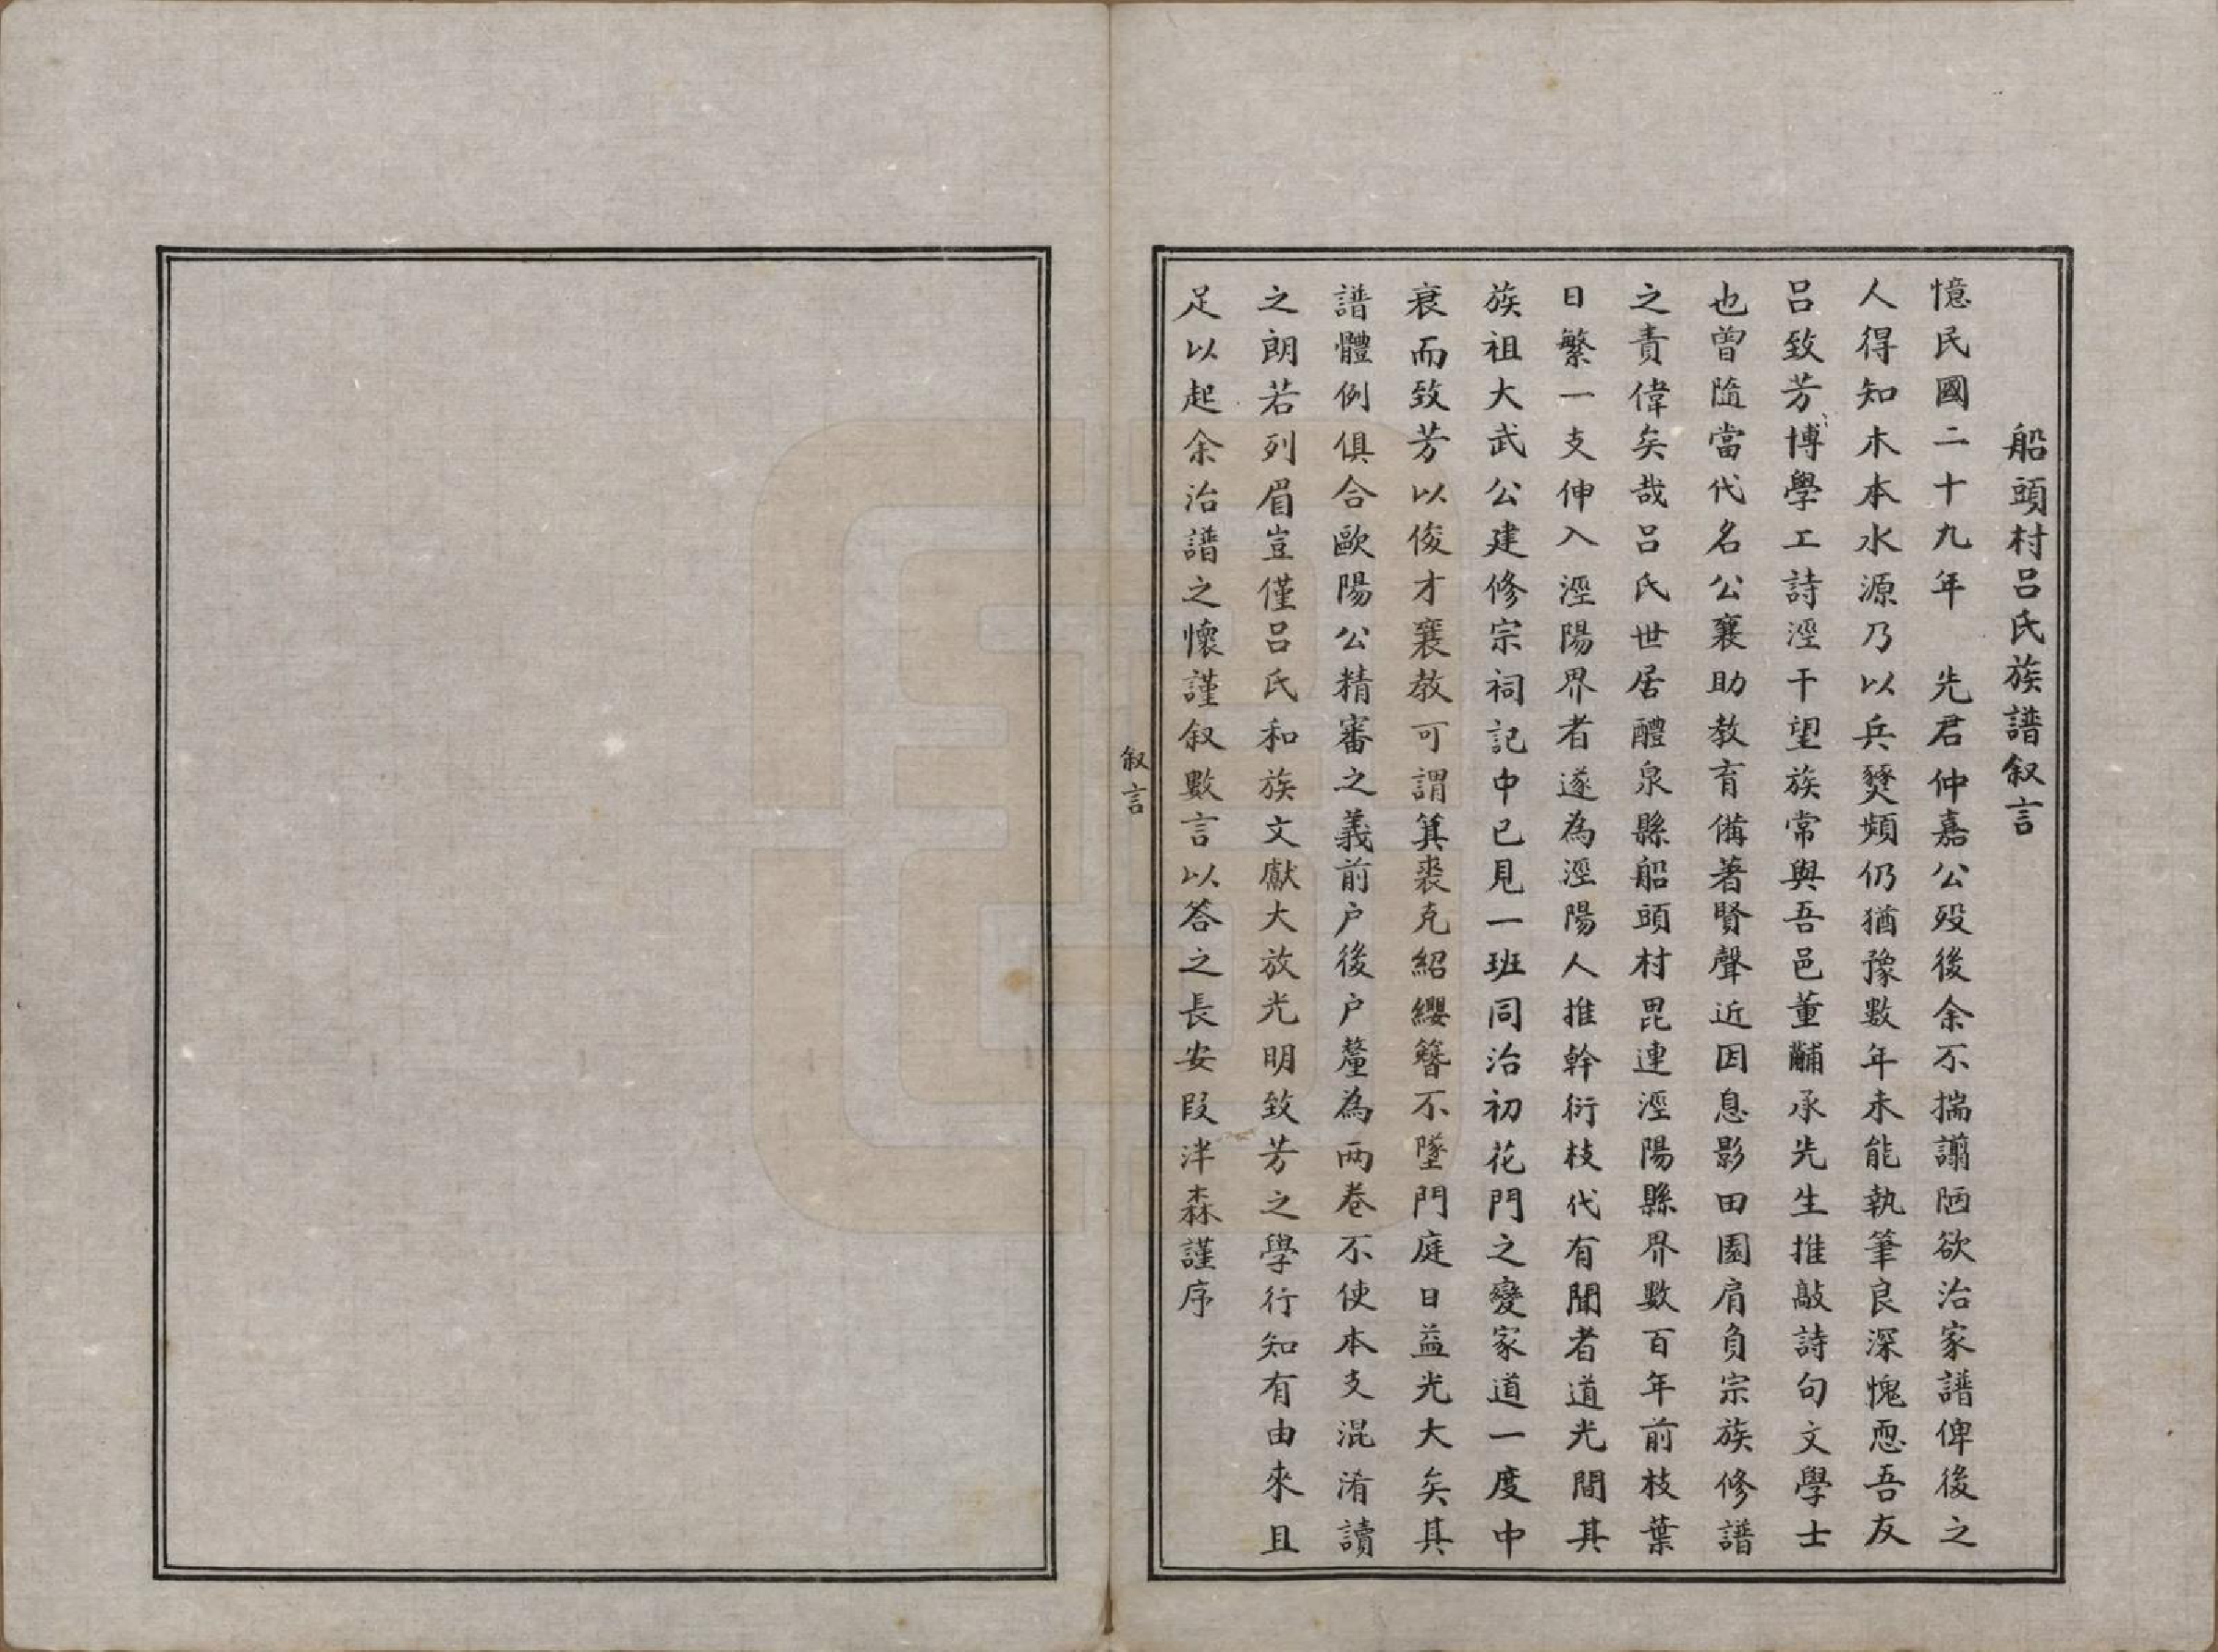 船頭村呂氏族譜叙言
憶民國二十九年　先君仲嘉公殁後余不揣譾陋欲治家譜俾後之
人得知木本水源乃以兵燹頻仍猶豫數年未能執筆良深愧恧吾友
呂致芳博學工詩涇干望族常與吾邑董黼承先生推敲詩句文學士
也曾隨當代名公襄助教育備著賢聲近因息影田園肩負宗族修譜
之責偉矣哉呂氏世居醴泉縣船頭村毘連涇陽縣界數百年前枝葉
日繁一支伸入涇陽界者遂為涇陽人推幹衍枝代有聞者道光間其
族祖大武公建修宗祠記中已見一班同治初花門之變家道一度中
衰而致芳以俊才襄教可謂箕裘克紹纓簪不墜門庭日益光大矣其
譜體例俱合歐陽公精審之義前户後户釐為兩卷不使本支混淆讀
之朗若列眉豈僅呂氏和族文獻大放光明致芳之學行知有由來且
足以起余治譜之懷謹叙數言以答之長安段泮森謹序
叙言